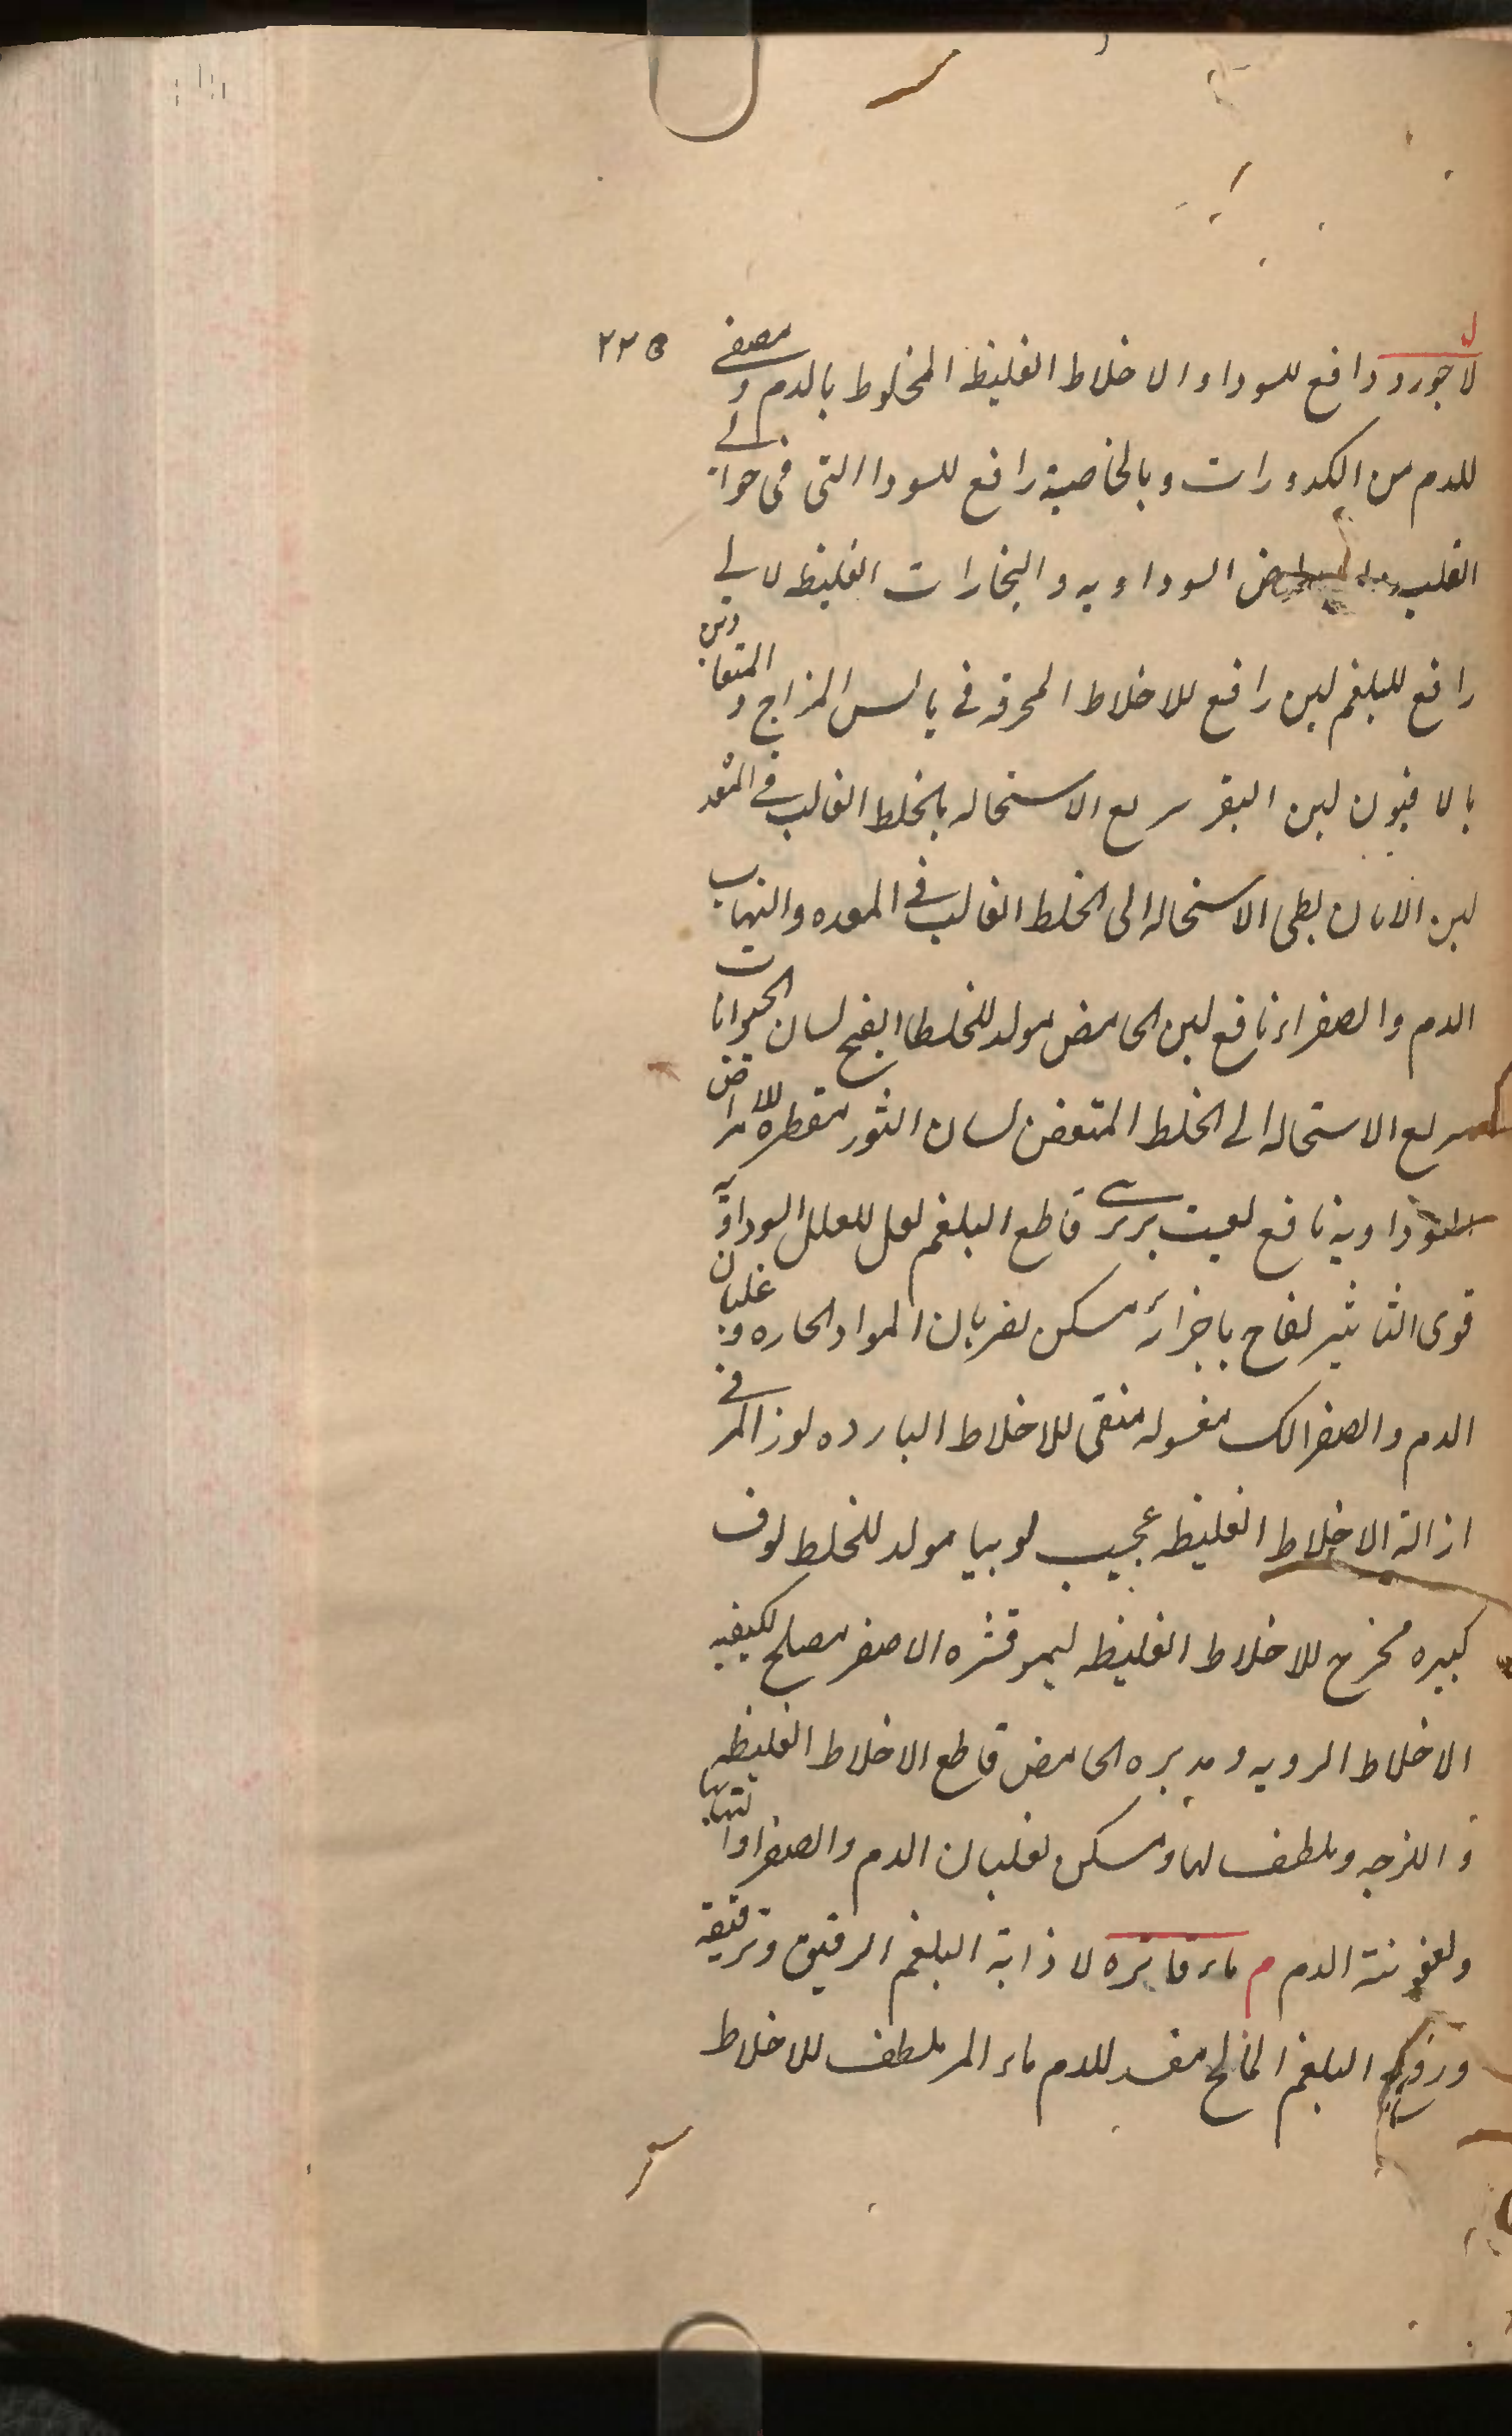 ۲۲۵
ل
لاجورد دافع للسودا و الاخلاط الغلیظه المخلوط بالدم و مصفی
للدم من الکدورات و بالخاصیة رافع للسودا التی فی حوالی
القلب السوداویه و البخارات الغلیظه لالی
رافع للبلغم لبن رافع للاخلاط المحرقه فی یابس المزاج و المتعادین
بالافیون لبن البقر سریع الاستحاله بالخلط الغالب فی المعد
لبن الاتان بطی الاستحاله الی الخلط الغالب فی المعده و التهاب
الدم و الصفراء نافع لبن الحامض مولد للخلط القبیح لسان الحیوانات
سریع الاستحاله الی الخلط المتعفن لسان الثور مقطره للامراض
السوداویة نافع بربری قاطع البلغم لعل للعلل السوداویه
قوی التاثیر لفاح باجزائه مسکن لضربان المواد الحاره و غلیان
الدم و الصفرا لک مغسوله منقی للاخلاط البارده لوز المر فی
ازالة الاخلاط الغلیظه عجیب لوبیا مولد للخلط لوف
کبیره مخرج للاخلاط الغلیظه لیمو قشره الاصفر مصلح لکیفیه
الاخلاط الردیه و الحامض قاطع الاخلاط الغلیظه
و اللزجه و ملطف لها و مسکن لغلیان الدم و الصفرا و التهابها
و لعفونته الدم م ماء فاتره لاذابة البلغم الرقیق و ترقیقه
البلغم المالح مفسد للدم ماء المر ملطف للاخلاط